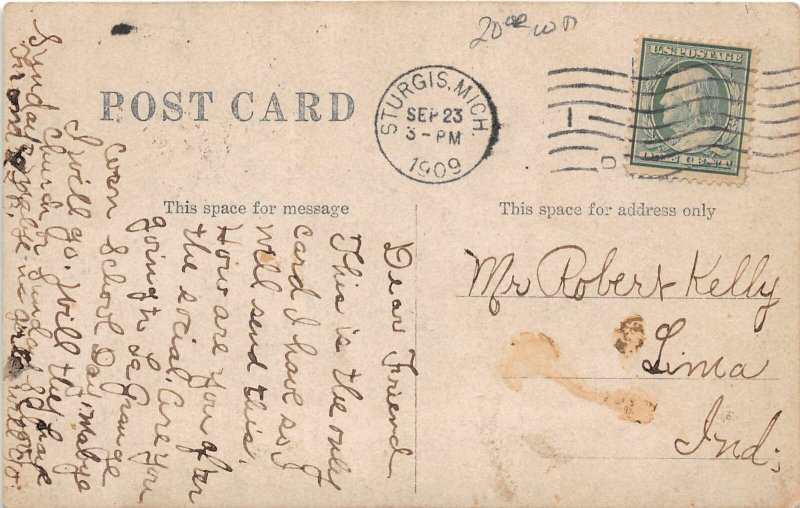 20 00
POST CARD
STURGIS, MICH.
SEP 23
3-PM
1909
U.S. POSTAGE
This space for message
This space for address only
Dear Friend
This is the only
card I have so I
will send this.
How are you after
the social. Are you
going to LaGrange
School Day, Mabye
I will go. Will they have
church Sunday
Sunday
Mr Robert Kelly
Lima
Ind;